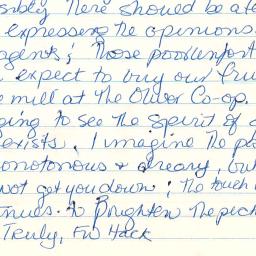 sibly there should be a le
expressing the opinions
agents; those poor unfort
expect to buy our fru
mill at the Oliver Co-op.
ging to see the spirit of c
exists. I imagine the pl
onotonous & dreary, but
not get you down; the touch
nues to brighten the pict
Truly, FW Hack